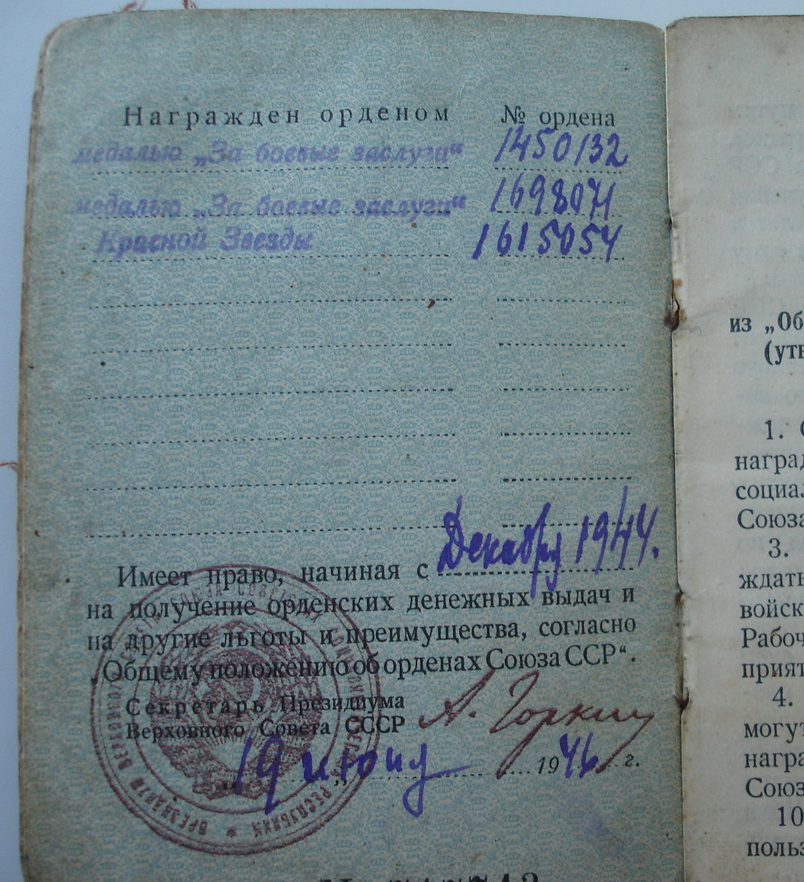 Награжден орденом № ордена
медалью „За боевые заслуги“ 1450132
медалью „За боевые заслуги“ 1698071
Красной Звезды 1615054
Имеет право, начиная с Декабря 1944.
на получение орденских денежных выдач и
на другие льготы и преимущества, согласно
„Общему положению об орденах Союза ССР“.
Секретарь Президиума
Верховного Совета СССР А. Горкин
19 июня 1946 г.
из „Об
(утв
1. О
наград
социал
Союза
3.
ждать
войск
Рабоч
прият
4.
могут
награ
Союз
10
польз